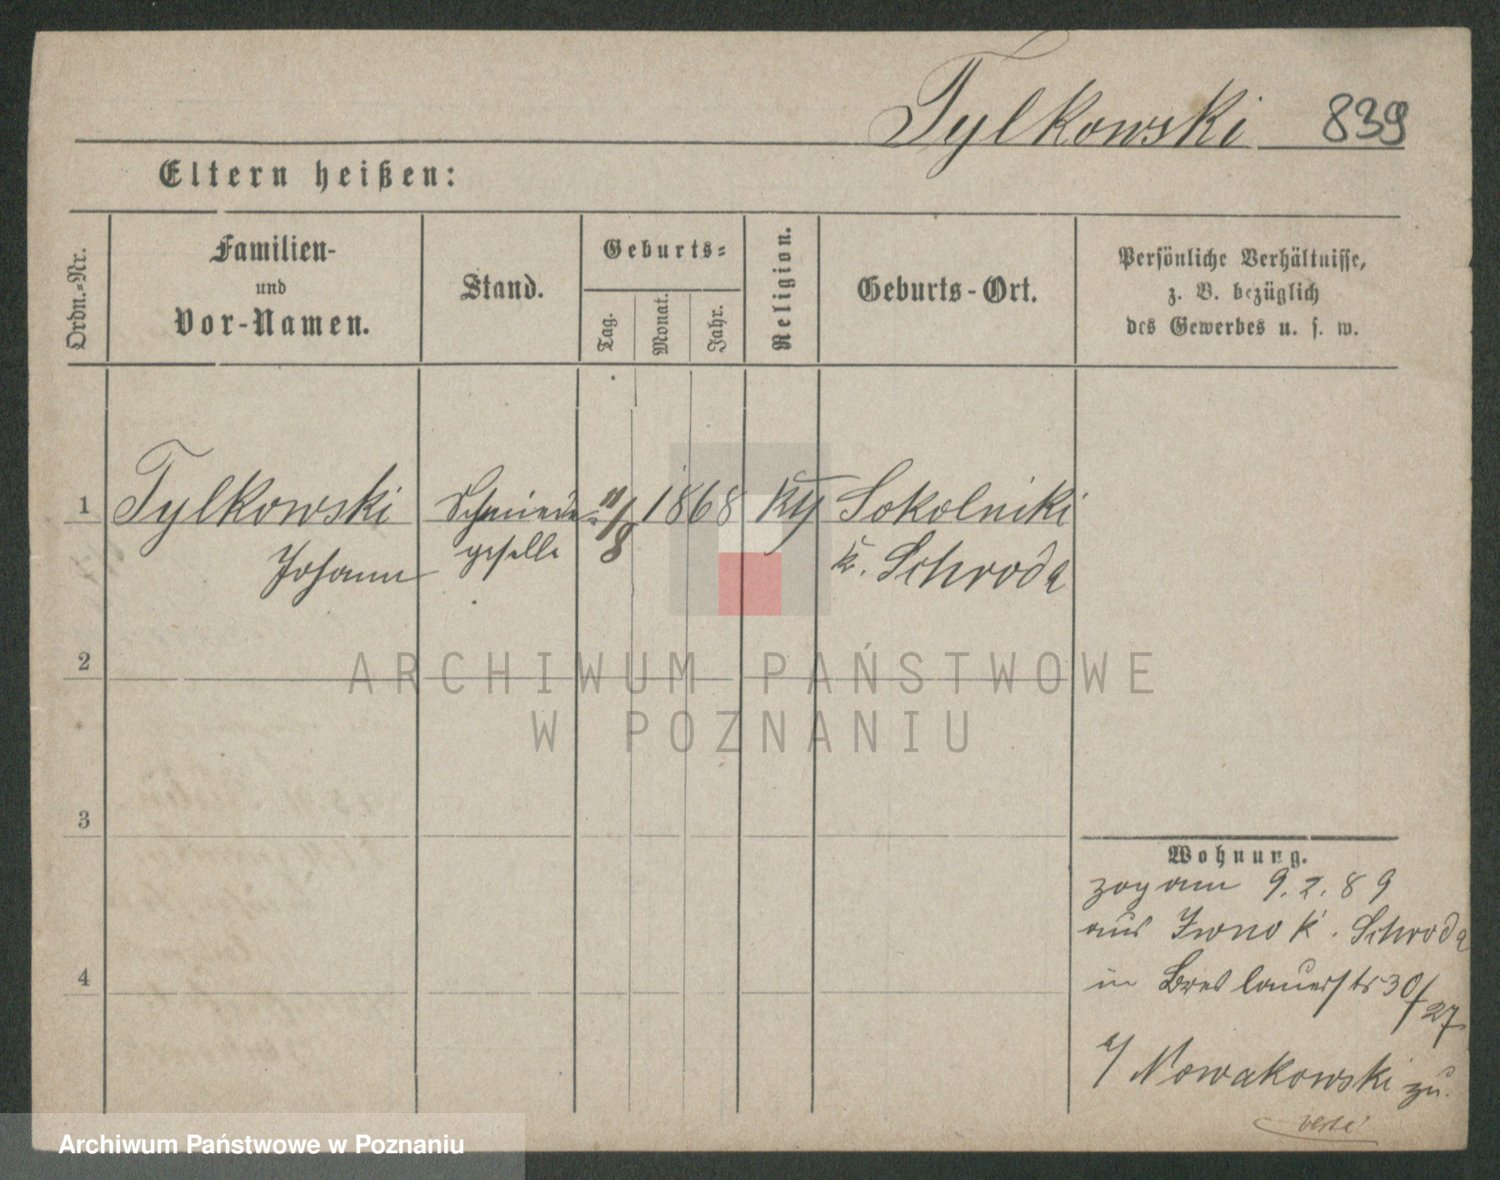 Tylkowski 839
Eltern heißen:
Ordn.-Nr.
Familien-
und
Vor-Namen.
Stand.
Geburts-
Tag.
Monat.
Jahr.
Religion.
Geburts-Ort.
Persönliche Verhältnisse,
z. B. bezüglich
des Gewerbes u. s. w.
1 Tylkowski Schmiede 11/8 1868 kth Sokolniki
Johann geselle K. Schroda
2
3
4
Wohnung.
zog am 9.2.89
aus Iwno K. Schroda
in Breslauerstr 30/27
b/ Nowakowski zu.
ARCHIWUM PAŃSTWOWE
W POZNANIU
Archiwum Państwowe w Poznaniu